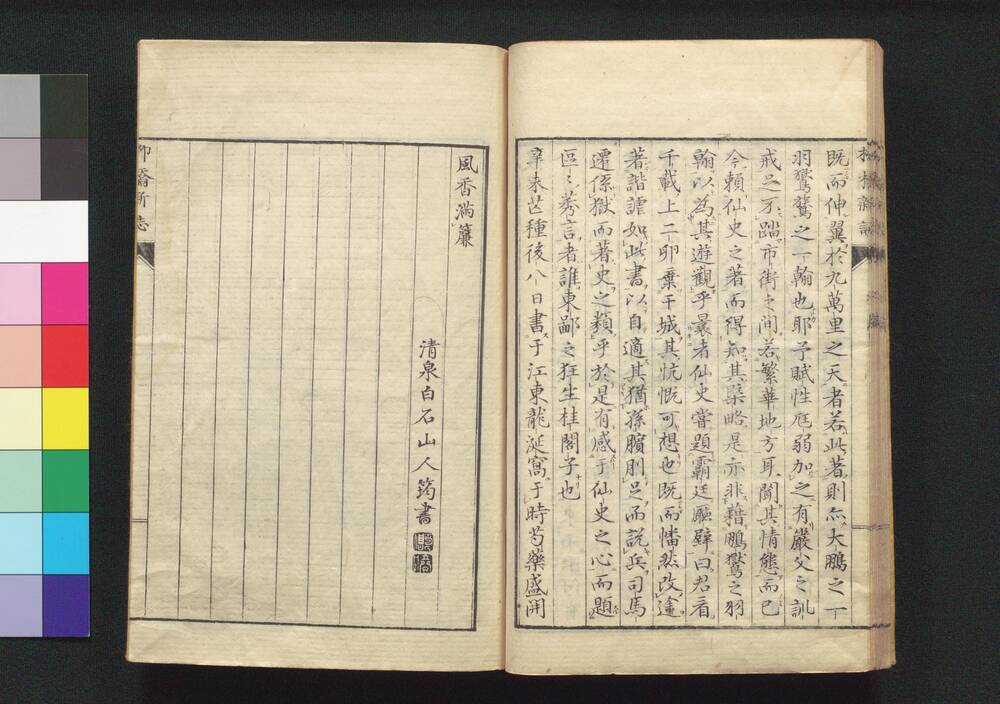 既而伸翼於九萬里之天者若此著則亦大鵬之一
羽鷲鶩之一翰也耶予賦性尫弱加之有嚴父之訓
戒足不踏市街之間若繁華地方耳聞其情態而已
今頼仙史之著而得知其槩略是亦非藉鵬鷲之羽
翰以為其遊觀乎曩者仙史嘗題霸廷廳壁曰君看
千載上二卵棄干城其忼慨可想也既而幡然改途
著諧謔如此書以自適其猶孫臏刖足而説兵司馬
遷係獄而著史之類乎於是有感于仙史之心而題
區〻蕘言者誰東鄙之狂生桂閣子也
辛未芒種後八日書于江東龍涎窩于時芍藥盛開
風香滿簾
清泉白石山人筠書
柳橋新志